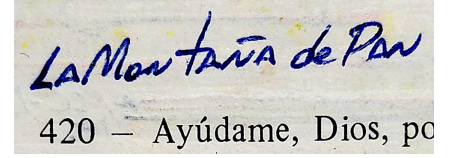 LA MonTAÑA de PAN
420 – Ayúdame, Dios, po